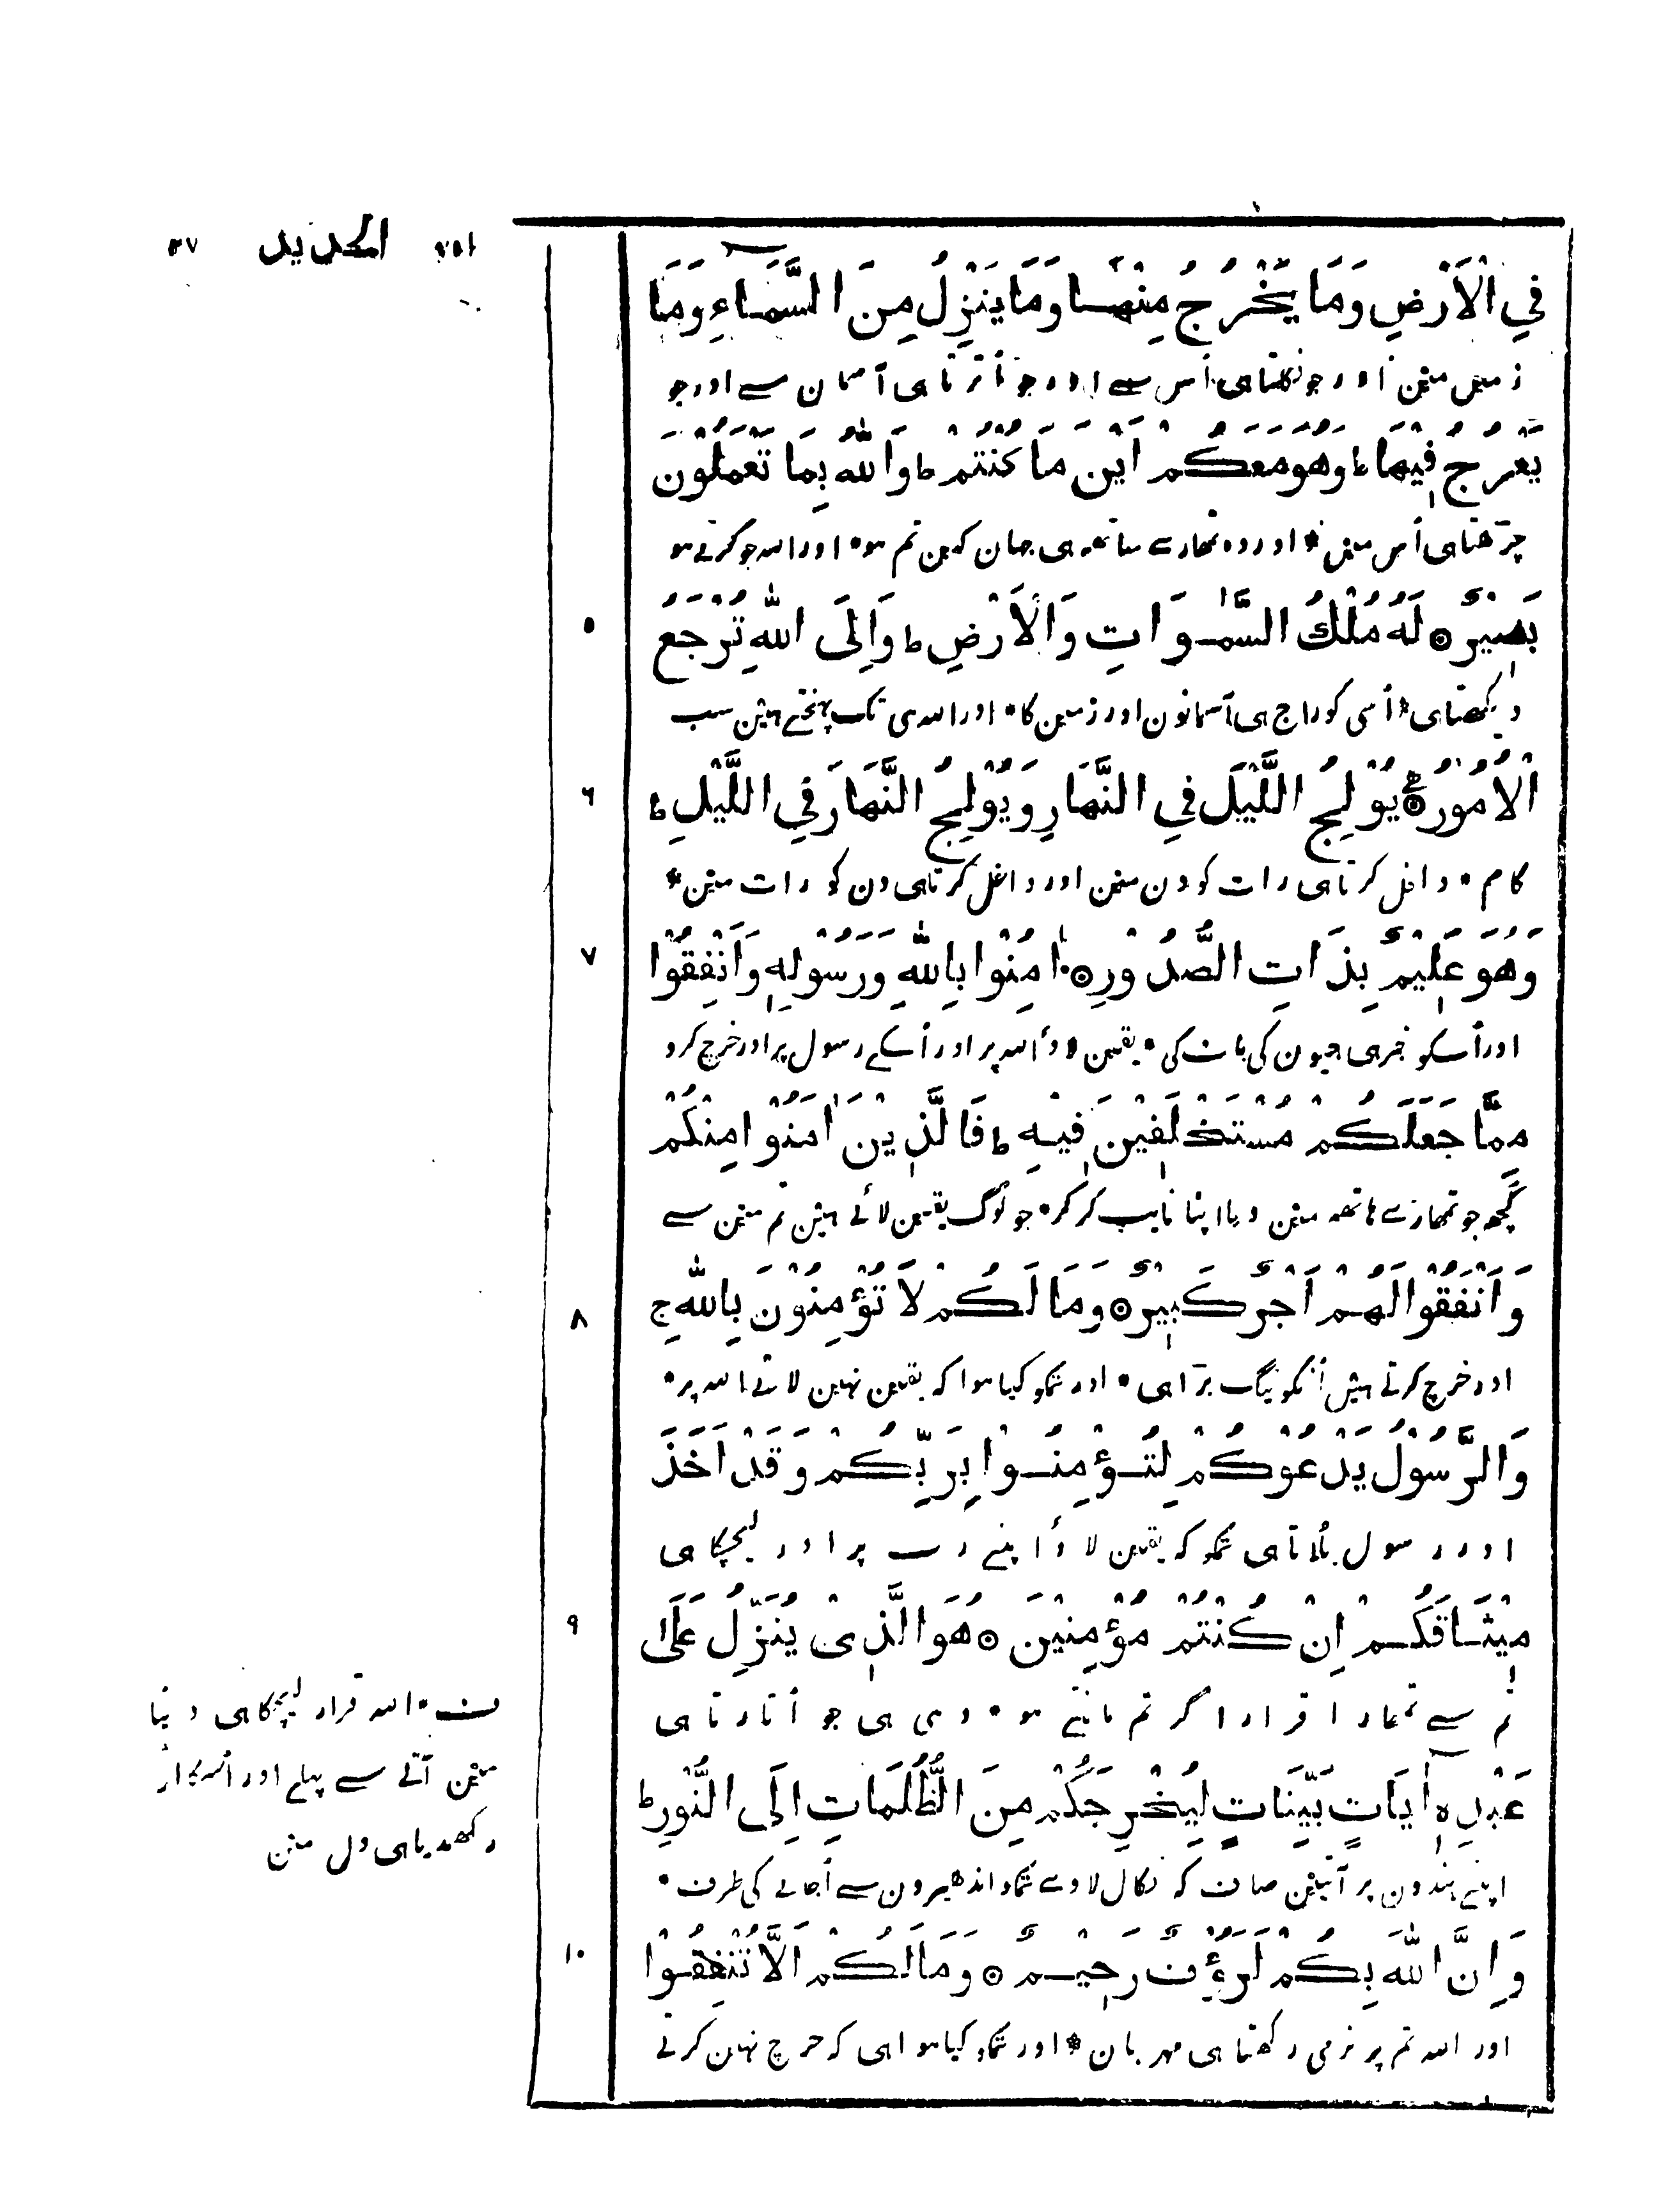 الحديد ٢٧
فِي الْاَرْضِ وَمَا يَخْرُجُ مِنْهَا وَمَا يَنْزِلُ مِنَ السَّمَاءِ وَمَا
زمین مین اور جو نکلتا ہی اُس سے اور جو اُترتا ہی آسمان سے اور جو
يَعْرُجُ فِيْهَا ؕ وَهُوَ مَعَكُمْ اَيْنَ مَا كُنْتُمْ ؕ وَاللّٰهُ بِمَا تَعْمَلُوْنَ
چرّھتا ہی اُس مین * اور وہ تمھارے ساتھ ہی جہان کہین تم ہو * اور اللہ جو کرتے ہو
۵ بَصِيْرٌ ۝ لَهُ مُلْكُ السَّمٰوَاتِ وَالْاَرْضِ ؕ وَاِلَى اللّٰهِ تُرْجَعُ
دیکھتا ہی * اُسی کو راج ہی آسمانون اور زمین کا * اور اللہ ہی تک پہنچتے ہین سب
۶ الْاُمُوْرُ ۝ يُوْلِجُ اللَّيْلَ فِي النَّهَارِ وَيُوْلِجُ النَّهَارَ فِي اللَّيْلِ ؕ
کام * داخل کرتا ہی رات کو دن مین اور داخل کرتا ہی دن کو رات مین *
۷ وَهُوَ عَلِيْمٌ بِذَاتِ الصُّدُوْرِ ۝ اٰمِنُوْا بِاللّٰهِ وَرَسُوْلِهٖ وَاَنْفِقُوْا
اور اُسکو خبر ہی جیون کی بات کی * یقین لاؤ اللہ پر اور اُسکے رسول پر اور خرچ کرو
مِمَّا جَعَلَكُمْ مُسْتَخْلَفِيْنَ فِيْهِ ؕ فَالَّذِيْنَ اٰمَنُوْا مِنْكُمْ
کچھ جو تمھارے ہاتھ مین دیا اپنا نایب کر کر * جو لوگ یقین لائے ہین تم مین سے
۸ وَاَنْفَقُوْا لَهُمْ اَجْرٌ كَبِيْرٌ ۝ وَمَا لَكُمْ لَا تُؤْمِنُوْنَ بِاللّٰهِ ج
اور خرچ کرتے ہین اُنکو نیگ برّا ہی * اور تمکو کیا ہوا کہ یقین نہین لاتے اللہ پر *
وَالرَّسُوْلُ يَدْعُوْكُمْ لِتُؤْمِنُوْا بِرَبِّكُمْ وَقَدْ اَخَذَ
اور رسول بُلاتا ہی تمکو کہ یقین لاؤ اپنے رب پر اور لیچکا ہی
۹ مِيْثَاقَكُمْ اِنْ كُنْتُمْ مُؤْمِنِيْنَ ۝ هُوَ الَّذِيْ يُنَزِّلُ عَلٰى
تم سے تمھارا اقرار اگر تم مانتے ہو * وہی ہی جو اُتارتا ہی
عَبْدِهٖ اٰيَاتٍ بَيِّنَاتٍ لِيُخْرِجَكُمْ مِنَ الظُّلُمَاتِ اِلَى النُّوْرِ ؕ
اپنے بندون پر آیتین صاف کہ نکال لاوے تمکو اندھیرون سے اُجالے کی طرف *
۱۰ وَاِنَّ اللّٰهَ بِكُمْ لَرَؤُفٌ رَحِيْمٌ ۝ وَمَا لَكُمْ اَلَّا تُنْفِقُوْا
اور اللہ تم پر نرمی رکھتا ہی مہربان * اور تمکو کیا ہوا ہی کہ خرچ نہین کرتے
ف * اللہ قرار لیچکا ہی دنیا
مین آنے سے پہلے اور
رکھدیا ہی دل مین